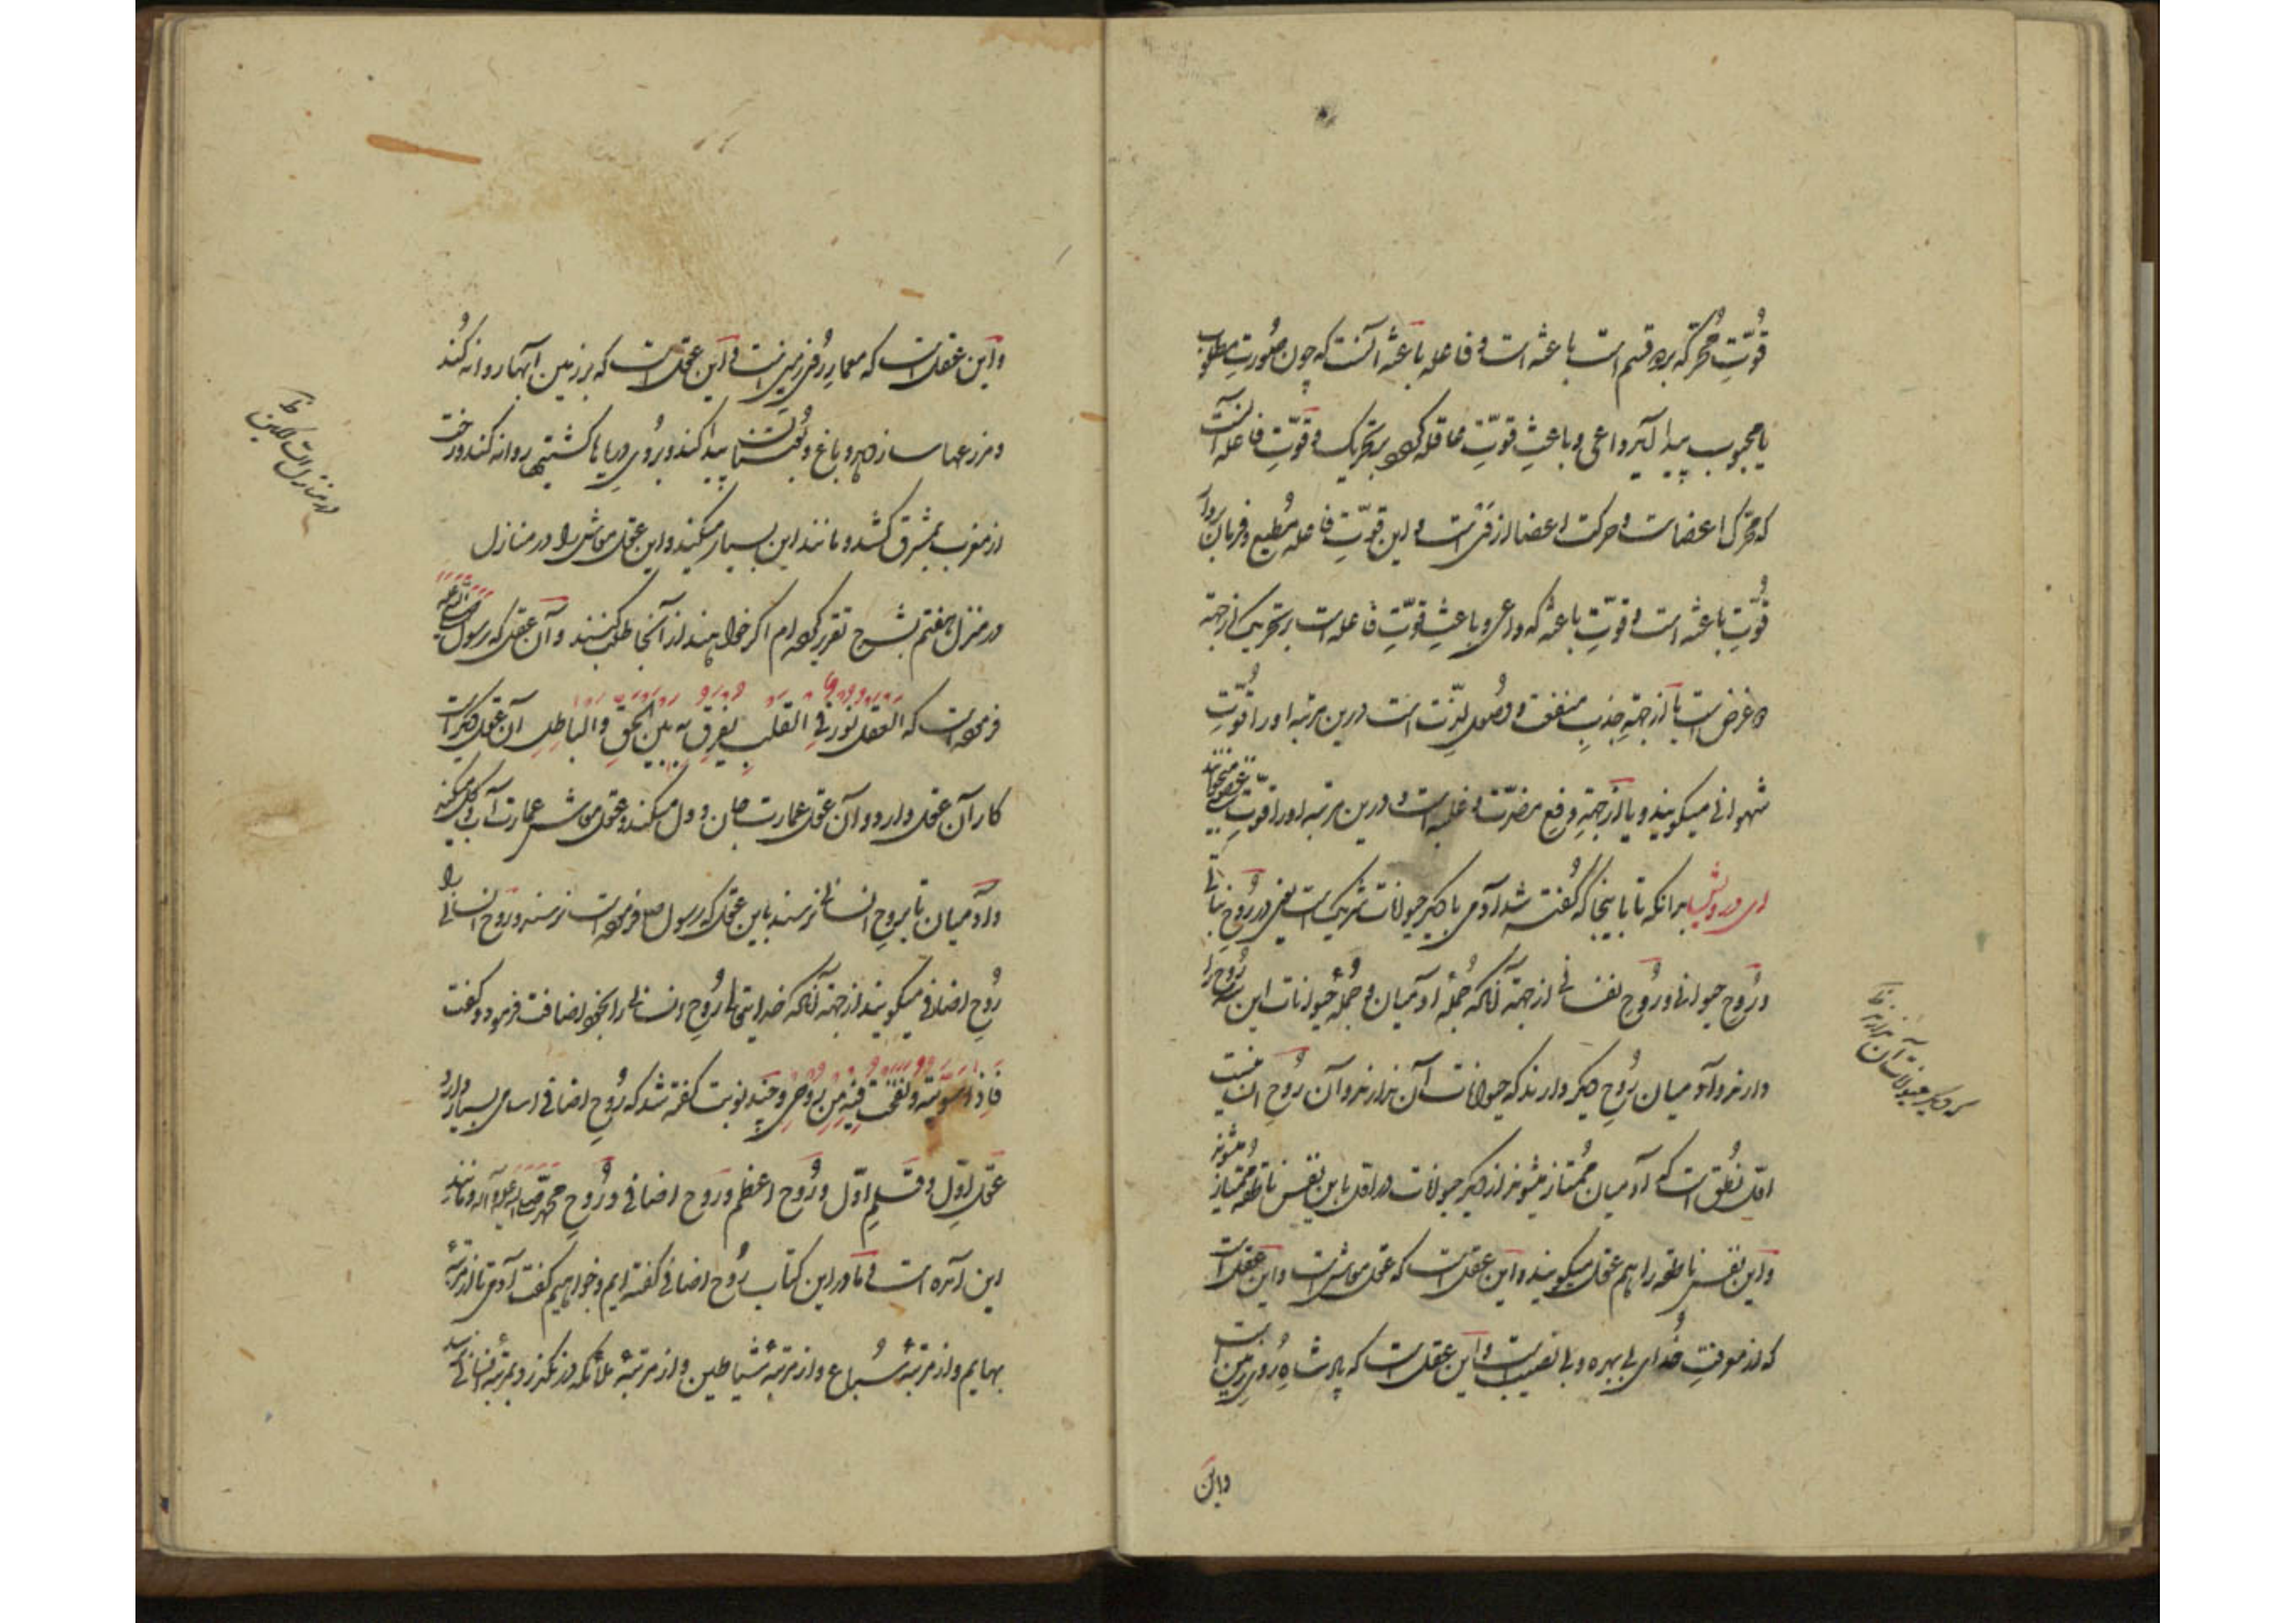 قُوّتِ مُحرّکه بر دو قسم است باعثه است و فاعله باعثه آنست که چون صُورتِ مطلوب
یا محبوب پیدا آید داعی و باعثِ قوّتِ فاعله گردد بر تحریک و قوّتِ فاعله آنست
که محرّک اعضاست و حرکت اعضا از وی است و این قوّتِ فاعله مُطیع و فرمان بردار
قُوّتِ باعثه است و قوّتِ باعثه که داعی و باعثِ قوّتِ فاعله است بر تحریک از جهة
دو غرض است یا از جهةِ جذبِ منفعت و حصُول لذّت است درین مرتبه او را قُوّتِ
شهوانی میگویند و یا از جهةِ دفع مضرّت و غلبه است و درین مرتبه او را قوّتِ غضبی میخوانند
ای درویش بدانکه تا باینجا که گُفته شد آدمی با دیگر حیوانات شریک است یعنی در رُوحِ نباتی
و رُوحِ حیوانی و رُوحِ نفسانی از جهة آنکه جُملهٔ آدمیان و جُملهٔ حیوانات این سه رُوح را
دارند و آدمیان رُوحِ دیگر دارند که حیوانات آن ندارند و آن رُوحِ انسانیست
اوّل نُطق است که آدمیان مُمتاز میشوند از دیگر حیوانات در اوّل باین نفس ناطقه ممتاز میشوند
و این نفس ناطقه را هم عقل میگویند و این عقلیست که عقل معاش است و این عقل است
که از معرفتِ خُدای بی بهره و بی نصیب است و این عقل است که پادشاهِ رُوی زمین است
واین
که دیگر حیوانات آن ندارند ظ
و این عقلست که معمارِ رُوی زمین است و این عقل است که بر زمین آبها روانه کُند
و مزرعها سازد و باغ و بُستان پیدا کند و بر رُوی دریاها کشتیها روانه کند و رخت
از مغرب بمشرق کشد و مانند این بسیار میکند و این عقل معاش را در منازل
در منزل هفتم بشرح تقریر کرده‌ام اگر خواهند از آنجا طلب کنند و آن عقل که رسول صلی الله علیه
فرموده است که العقل نُورٌ فِی القلب یفرق به بین الحقِ والباطِل آن عقل دیگر است
کار آن عقل دارد و آن عقل عمارت جان و دل میکند و عقل معاش عمارت آب و گل میکند
و آدمیان تا بروحِ انسانی نرسند باین عقل که رسول ص فرموده است نرسند و رُوح انسانی را
رُوحِ اضافی میگویند از جهة آنکه خدایتعالی رُوحِ انسانی را بخود اضافت فرمود و گفت
فَاِذا سوّیته ونفخت فِیه مِن رُوحِی و چند نوبت گفته شد که رُوح اضافی اسامی بسیار دارد
عقل اوّل و قلمِ اوّل و رُوح اعظم و رُوح اضافی و رُوحِ محمد صلی الله علیه و آله و مانند
این آمده است و ما در این کتاب رُوح اضافی گفته‌ایم و خواهیم گفت آدمی تا از مرتبهٔ
بهایم و از مرتبهٔ سُباع و از مرتبهٔ شیاطین و از مرتبهٔ ملائکه درنگذرد و بمرتبهٔ انسانی نرسد